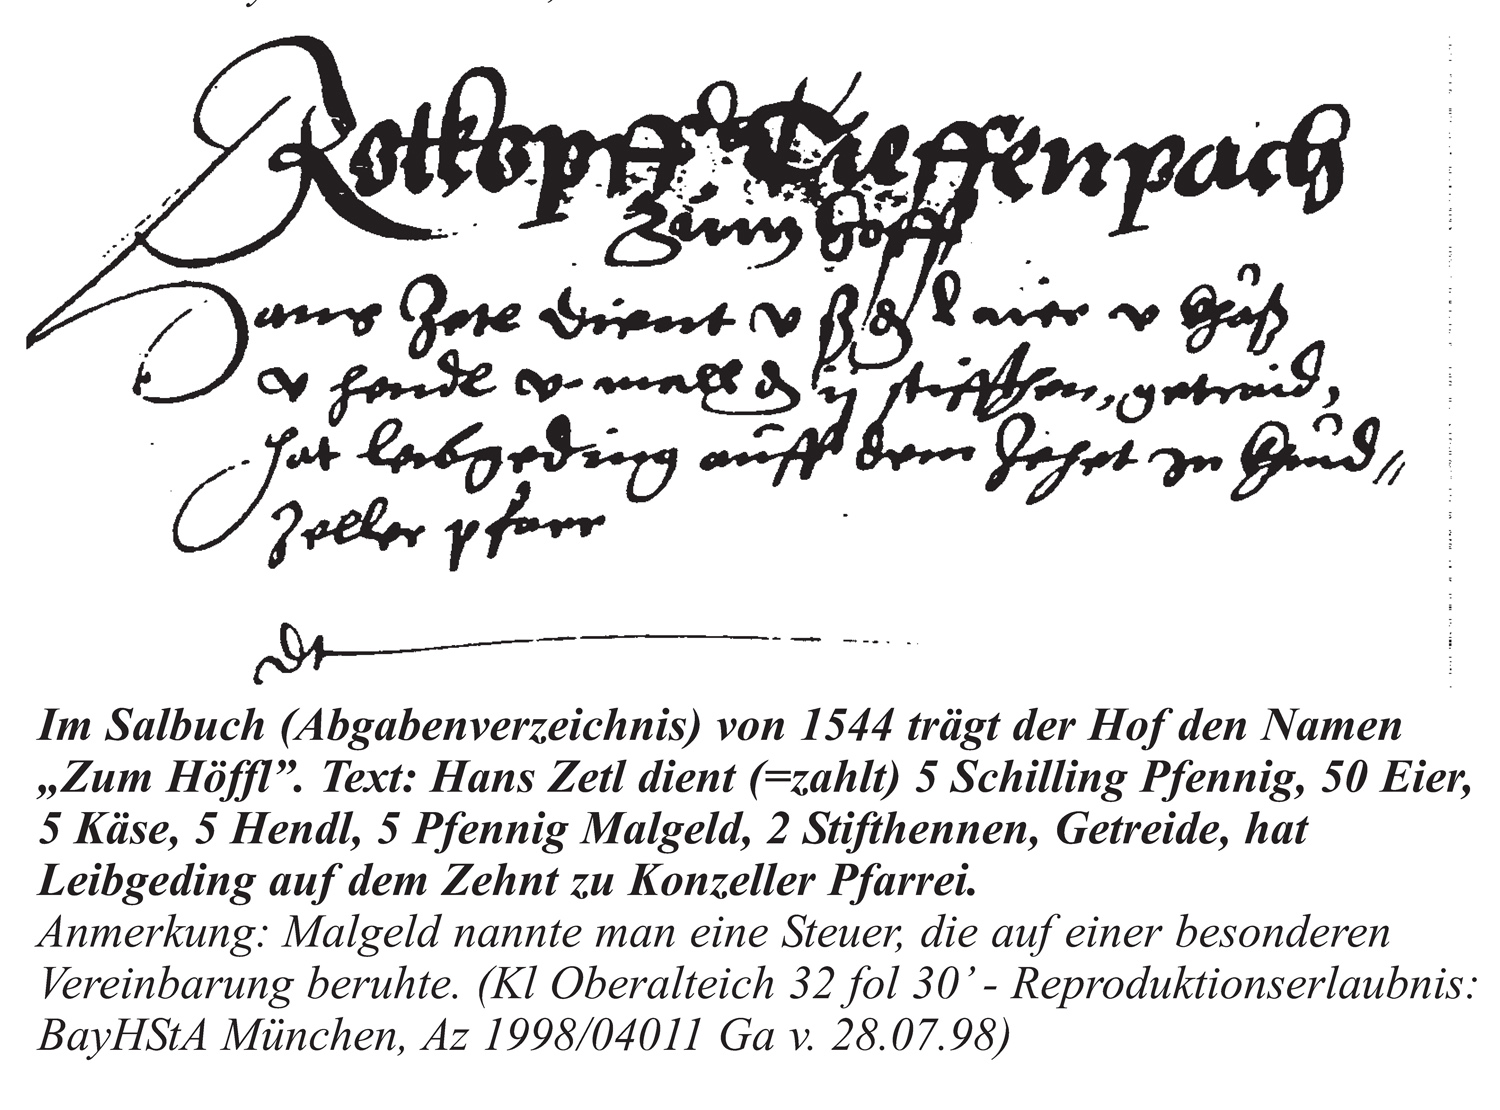 Rotkopff Tieffenpach
Zum Höffl
Hans Zetl dient v ß d l aier v Chäß
v hendl v mall d ij stiffthen, getraid,
hat leibgeding auff dem Zehet zu Chünd//
Zeller pfarr
dt
Im Salbuch (Abgabenverzeichnis) von 1544 trägt der Hof den Namen
„Zum Höffl”. Text: Hans Zetl dient (=zahlt) 5 Schilling Pfennig, 50 Eier,
5 Käse, 5 Hendl, 5 Pfennig Malgeld, 2 Stifthennen, Getreide, hat
Leibgeding auf dem Zehnt zu Konzeller Pfarrei.
Anmerkung: Malgeld nannte man eine Steuer, die auf einer besonderen
Vereinbarung beruhte. (Kl Oberalteich 32 fol 30’ - Reproduktionserlaubnis:
BayHStA München, Az 1998/04011 Ga v. 28.07.98)